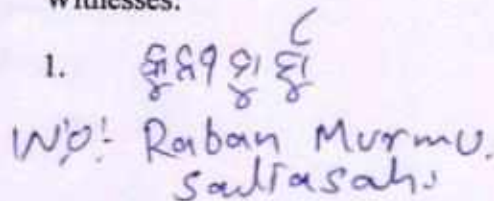 Witnesses:
1. ମୁର୍ମୁ
W/O:- Raban Murmu.
Saliasahi